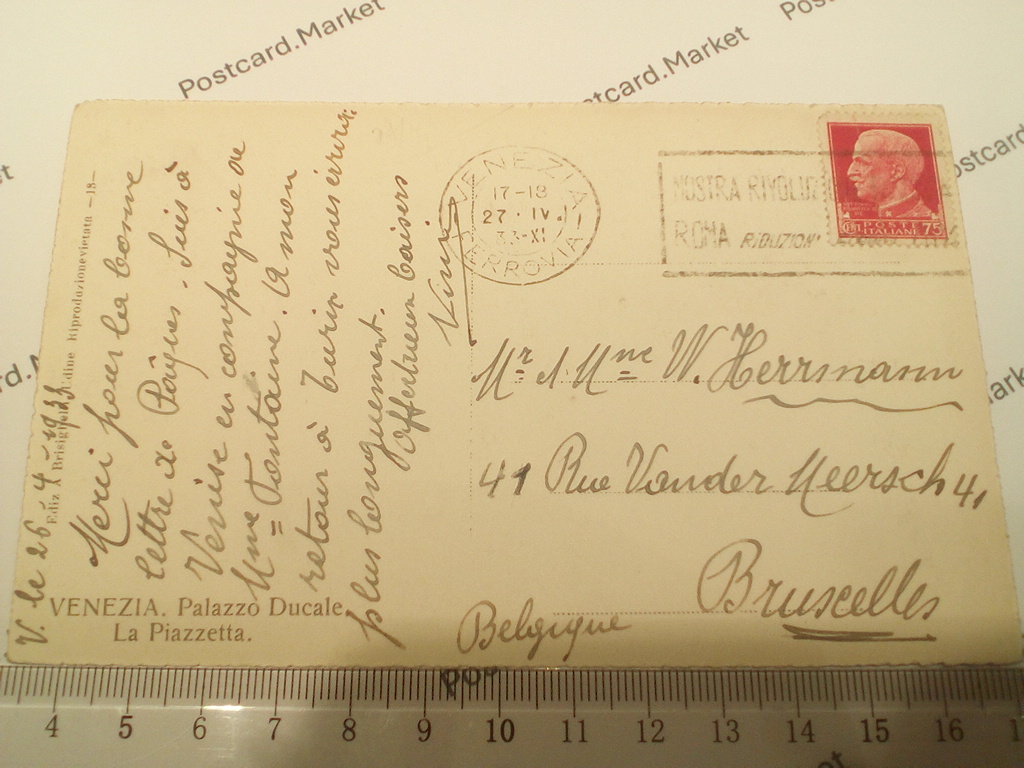 Postcard.Market
Postcard.Market
VENEZIA
17-18
27·IV
33-XI
FERROVIA
MOSTRA RIVOLUZ
ROMA RIDUZIONI
POSTE
ITALIANE
75
Ediz A Brisighelli Udine Riproduzione vietata -18-
V. le 26-4-1933
Merci pour la bonne
lettre de Pâques. Suis à
Venise en compagnie de
Mme Fontaine. A mon
retour à Turin vous écrirai
plus longuement.
Affectueux baisers
Mr & Mme W. Herrmann
41 Rue Vander Meersch 41
Bruxelles
Belgique
VENEZIA. Palazzo Ducale
La Piazzetta.
4 5 6 7 8 9 10 11 12 13 14 15 16